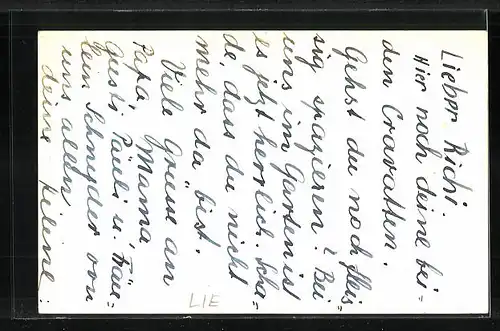 Lieber Richi.
Hier noch deine bei=
den Cravatten.
Gehst du noch fleis=
sig spazieren? Bei
uns im Garten ist
es jetzt herrlich. Scha=
de, dass du nicht
mehr da bist.
Viele Grüsse an
Papa, Mama,
Gusti, Päuli u. Fräu=
lein Schnyder von
uns allen
deine Helene.
LIE